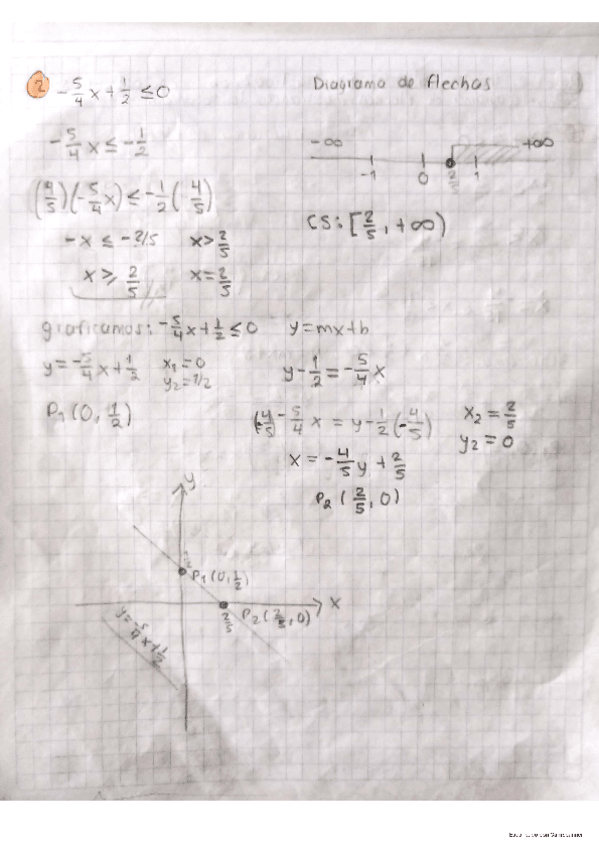 2 -5/4 x + 1/2 ≤ 0
-5/4 x ≤ -1/2
(4/5)(-5/4 x) ≤ -1/2 (4/5)
-x ≤ -2/5   x > 2/5
x ≥ 2/5   x = 2/5
Diagrama de flechas
-∞   +∞
-1   0   2/5   1
CS: [2/5, +∞)
graficamos: -5/4 x + 1/2 ≤ 0   y = mx + b
y = -5/4 x + 1/2   x₁ = 0
y₂ = 1/2
P₁ (0, 1/2)
y - 1/2 = -5/4 x
(4/5 - 5/4 x = y - 1/2 (-4/5)   x₂ = 2/5
y₂ = 0
x = -4/5 y + 2/5
P₂ (2/5, 0)
y
P₁ (0, 1/2)
x
2/5   P₂ (2/5, 0)
y = -5/4 x + 1/2